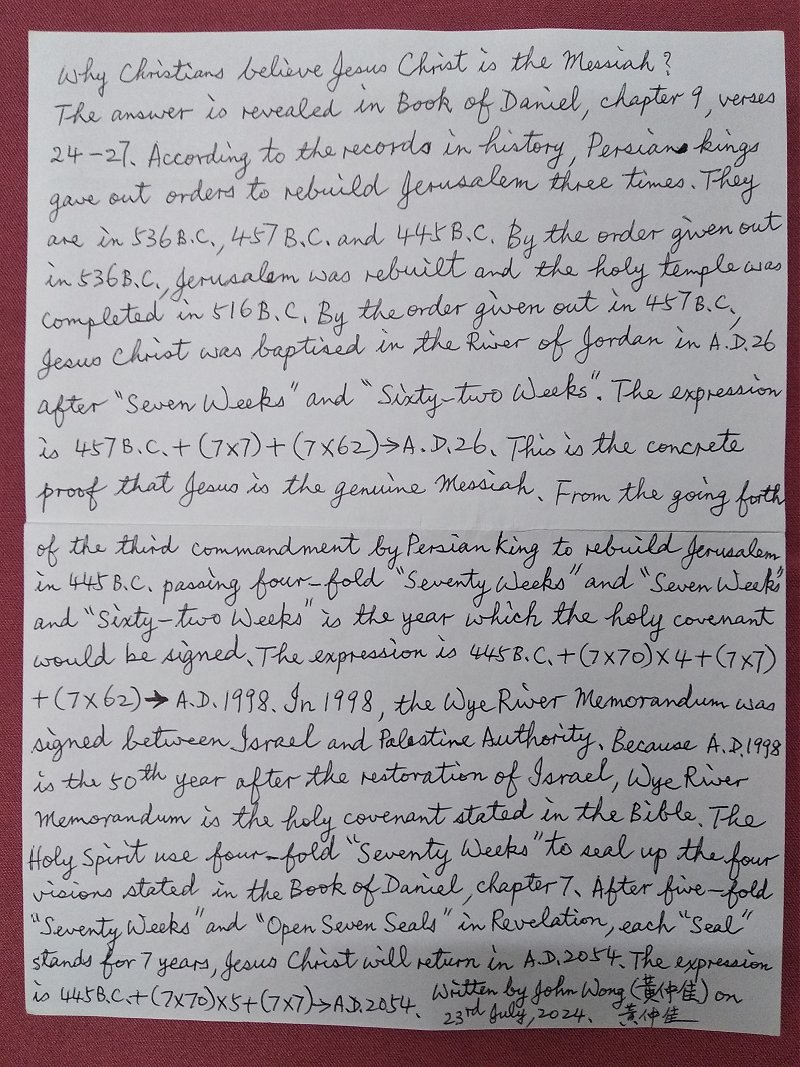 Why Christians believe Jesus Christ is the Messiah?
The answer is revealed in Book of Daniel, chapter 9, verses
24-27. According to the records in history, Persian kings
gave out orders to rebuild Jerusalem three times. They
are in 536 B.C., 457 B.C. and 445 B.C. By the order given out
in 536 B.C., Jerusalem was rebuilt and the holy temple was
completed in 516 B.C. By the order given out in 457 B.C.,
Jesus Christ was baptised in the River of Jordan in A.D.26
after "Seven Weeks" and "Sixty-two Weeks". The expression
is 457 B.C.+(7x7)+(7x62)→A.D.26. This is the concrete
proof that Jesus is the genuine Messiah. From the going forth
of the third commandment by Persian King to rebuild Jerusalem
in 445 B.C. passing four-fold "Seventy Weeks" and "Seven Weeks"
and "Sixty-two Weeks" is the year which the holy covenant
would be signed. The expression is 445 B.C.+(7x70)x4+(7x7)
+(7x62)→A.D.1998. In 1998, the Wye River Memorandum was
signed between Israel and Palestine Authority. Because A.D.1998
is the 50th year after the restoration of Israel, Wye River
Memorandum is the holy covenant stated in the Bible. The
Holy Spirit use four-fold "Seventy Weeks" to seal up the four
visions stated in the Book of Daniel, chapter 7. After five-fold
"Seventy Weeks" and "Open Seven Seals" in Revelation, each "Seal"
stands for 7 years, Jesus Christ will return in A.D.2054. The expression
is 445 B.C.+(7x70)x5+(7x7)→A.D.2054. Written by John Wong (黃仲佳) on
23rd July, 2024. 黃仲佳